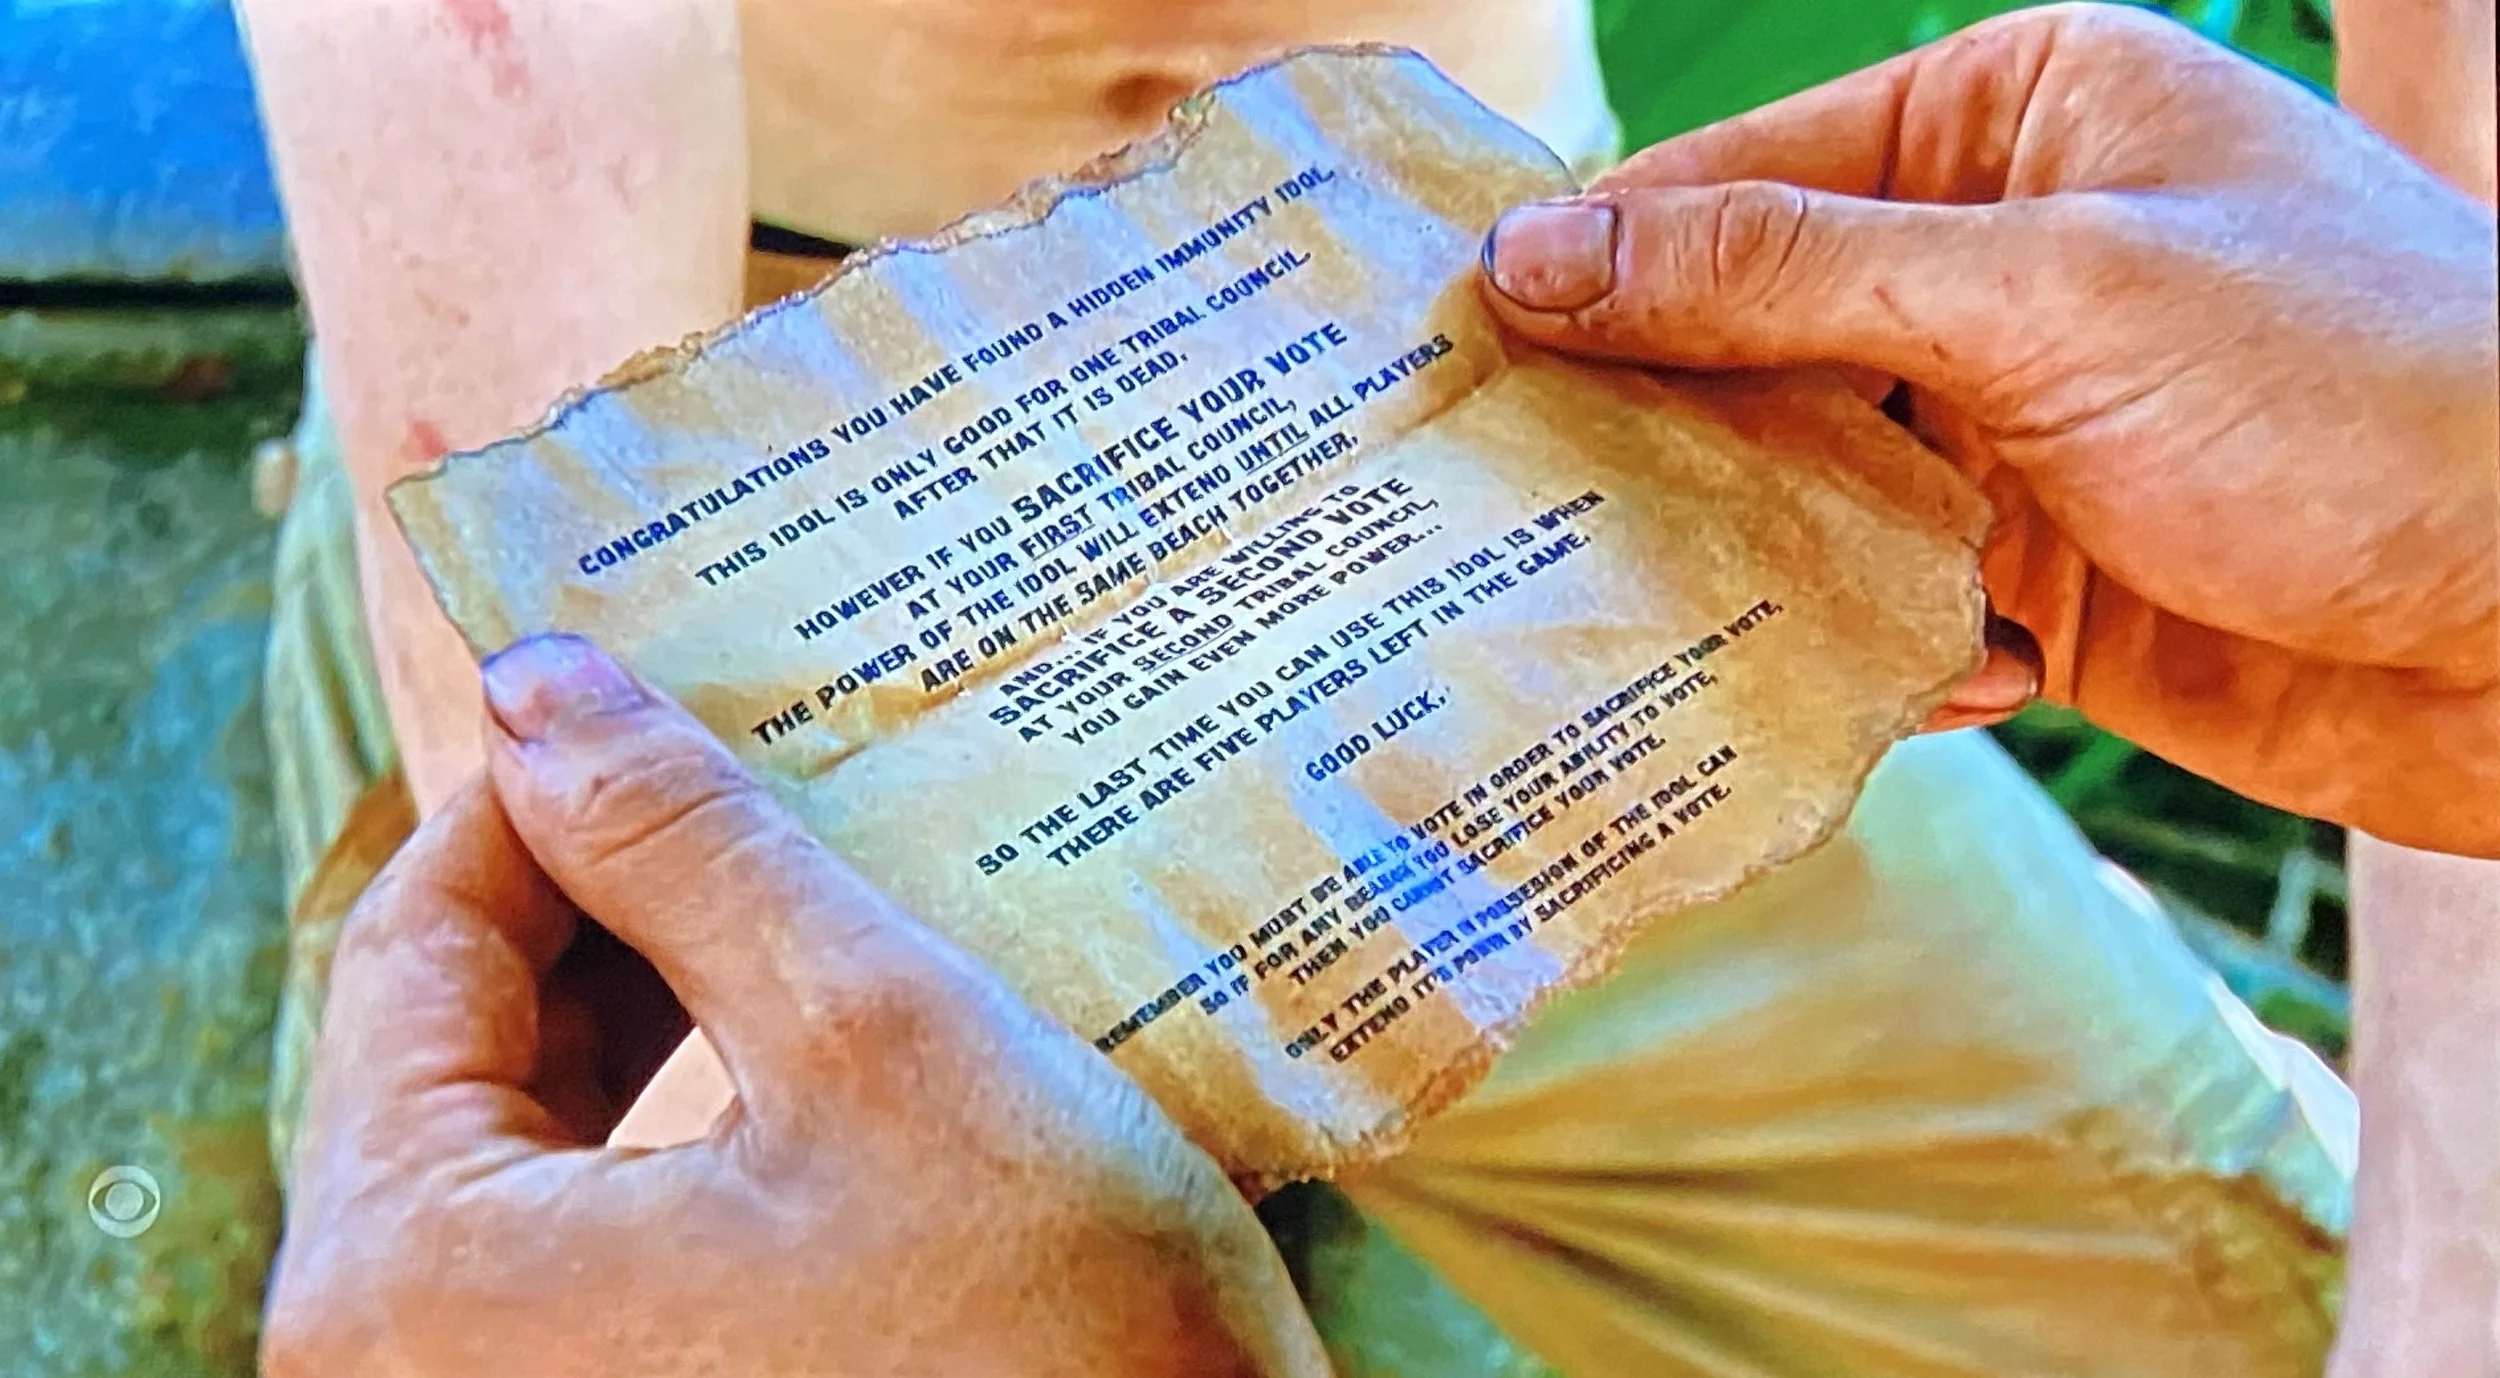 CONGRATULATIONS YOU HAVE FOUND A HIDDEN IMMUNITY IDOL.
THIS IDOL IS ONLY GOOD FOR ONE TRIBAL COUNCIL.
AFTER THAT IT IS DEAD.
HOWEVER IF YOU SACRIFICE YOUR VOTE
AT YOUR FIRST TRIBAL COUNCIL,
THE POWER OF THE IDOL WILL EXTEND UNTIL ALL PLAYERS
ARE ON THE SAME BEACH TOGETHER,
AND... IF YOU ARE WILLING TO
SACRIFICE A SECOND VOTE
AT YOUR SECOND TRIBAL COUNCIL,
YOU GAIN EVEN MORE POWER...
SO THE LAST TIME YOU CAN USE THIS IDOL IS WHEN
THERE ARE FIVE PLAYERS LEFT IN THE GAME.
GOOD LUCK,
REMEMBER YOU MUST BE ABLE TO VOTE IN ORDER TO SACRIFICE YOUR VOTE,
SO IF FOR ANY REASON YOU LOSE YOUR ABILITY TO VOTE,
THEN YOU CANNOT SACRIFICE YOUR VOTE.
ONLY THE PLAYER IN POSSESION OF THE IDOL CAN
EXTEND IT'S POWER BY SACRIFICING A VOTE.